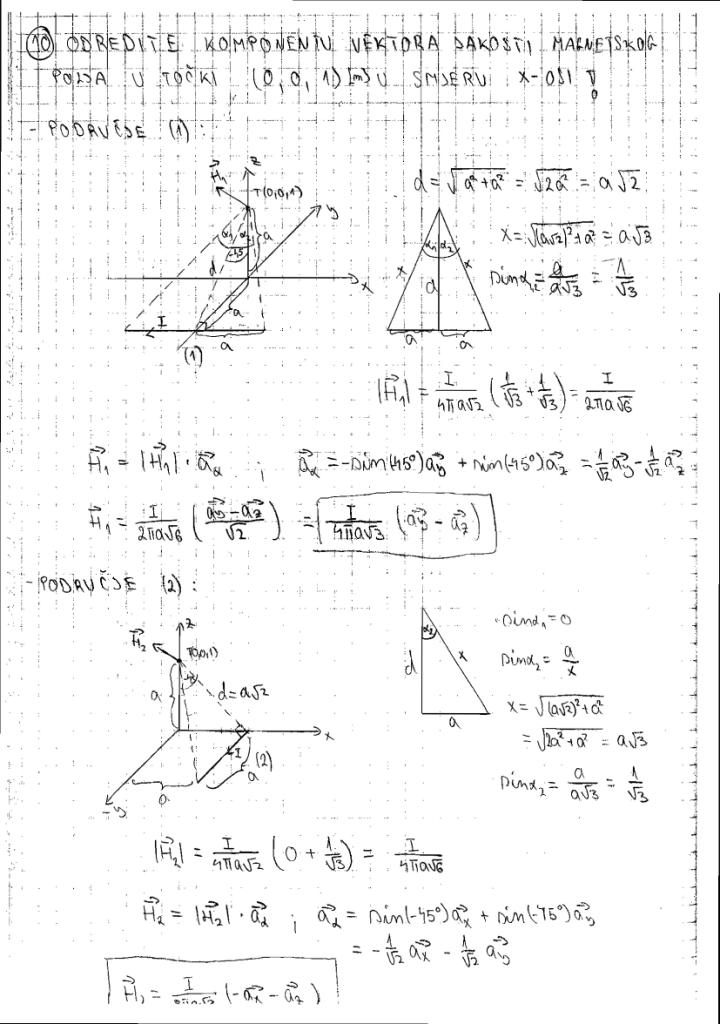 10 ODREDITE KOMPONENTU VEKTORA JAKOSTI MAGNETSKOG
POLJA U TOČKI (0,0,1)[m] U SMJERU X-OSI !
- PODRUČJE (1):
z
H⃗₁
T(0,0,1)
y
α₁ α₂
a
-45
d
x
a
I
a
(1)
d = √(a²+a²) = √(2a²) = a√2
x = √((a√2)²+a²) = a√3
sinα₁,₂ = a/(a√3) = 1/√3
α₁ α₂
x d x
a a
|H⃗₁| = I/(4πa√2) (1/√3 + 1/√3) = I/(2πa√6)
H⃗₁ = |H⃗₁| · a⃗α ; a⃗α = -sin(-45°)a⃗y + sin(-45°)a⃗z = 1/√2 a⃗y - 1/√2 a⃗z
H⃗₁ = I/(2πa√6) ((a⃗y - a⃗z)/√2) = I/(4πa√3) (a⃗y - a⃗z)
- PODRUČJE (2):
z
H⃗₂
T(0,0,1)
a
d = a√2
x
I (2)
a
a
-y
α₂
d x
a
sinα₁ = 0
sinα₂ = a/x
x = √((a√2)²+a²)
= √(2a²+a²) = a√3
sinα₂ = a/(a√3) = 1/√3
|H⃗₂| = I/(4πa√2) (0 + 1/√3) = I/(4πa√6)
H⃗₂ = |H⃗₂| · a⃗α ; a⃗α = sin(-45°)a⃗x + sin(-45°)a⃗y
= -1/√2 a⃗x - 1/√2 a⃗y
(-a⃗x - a⃗z)